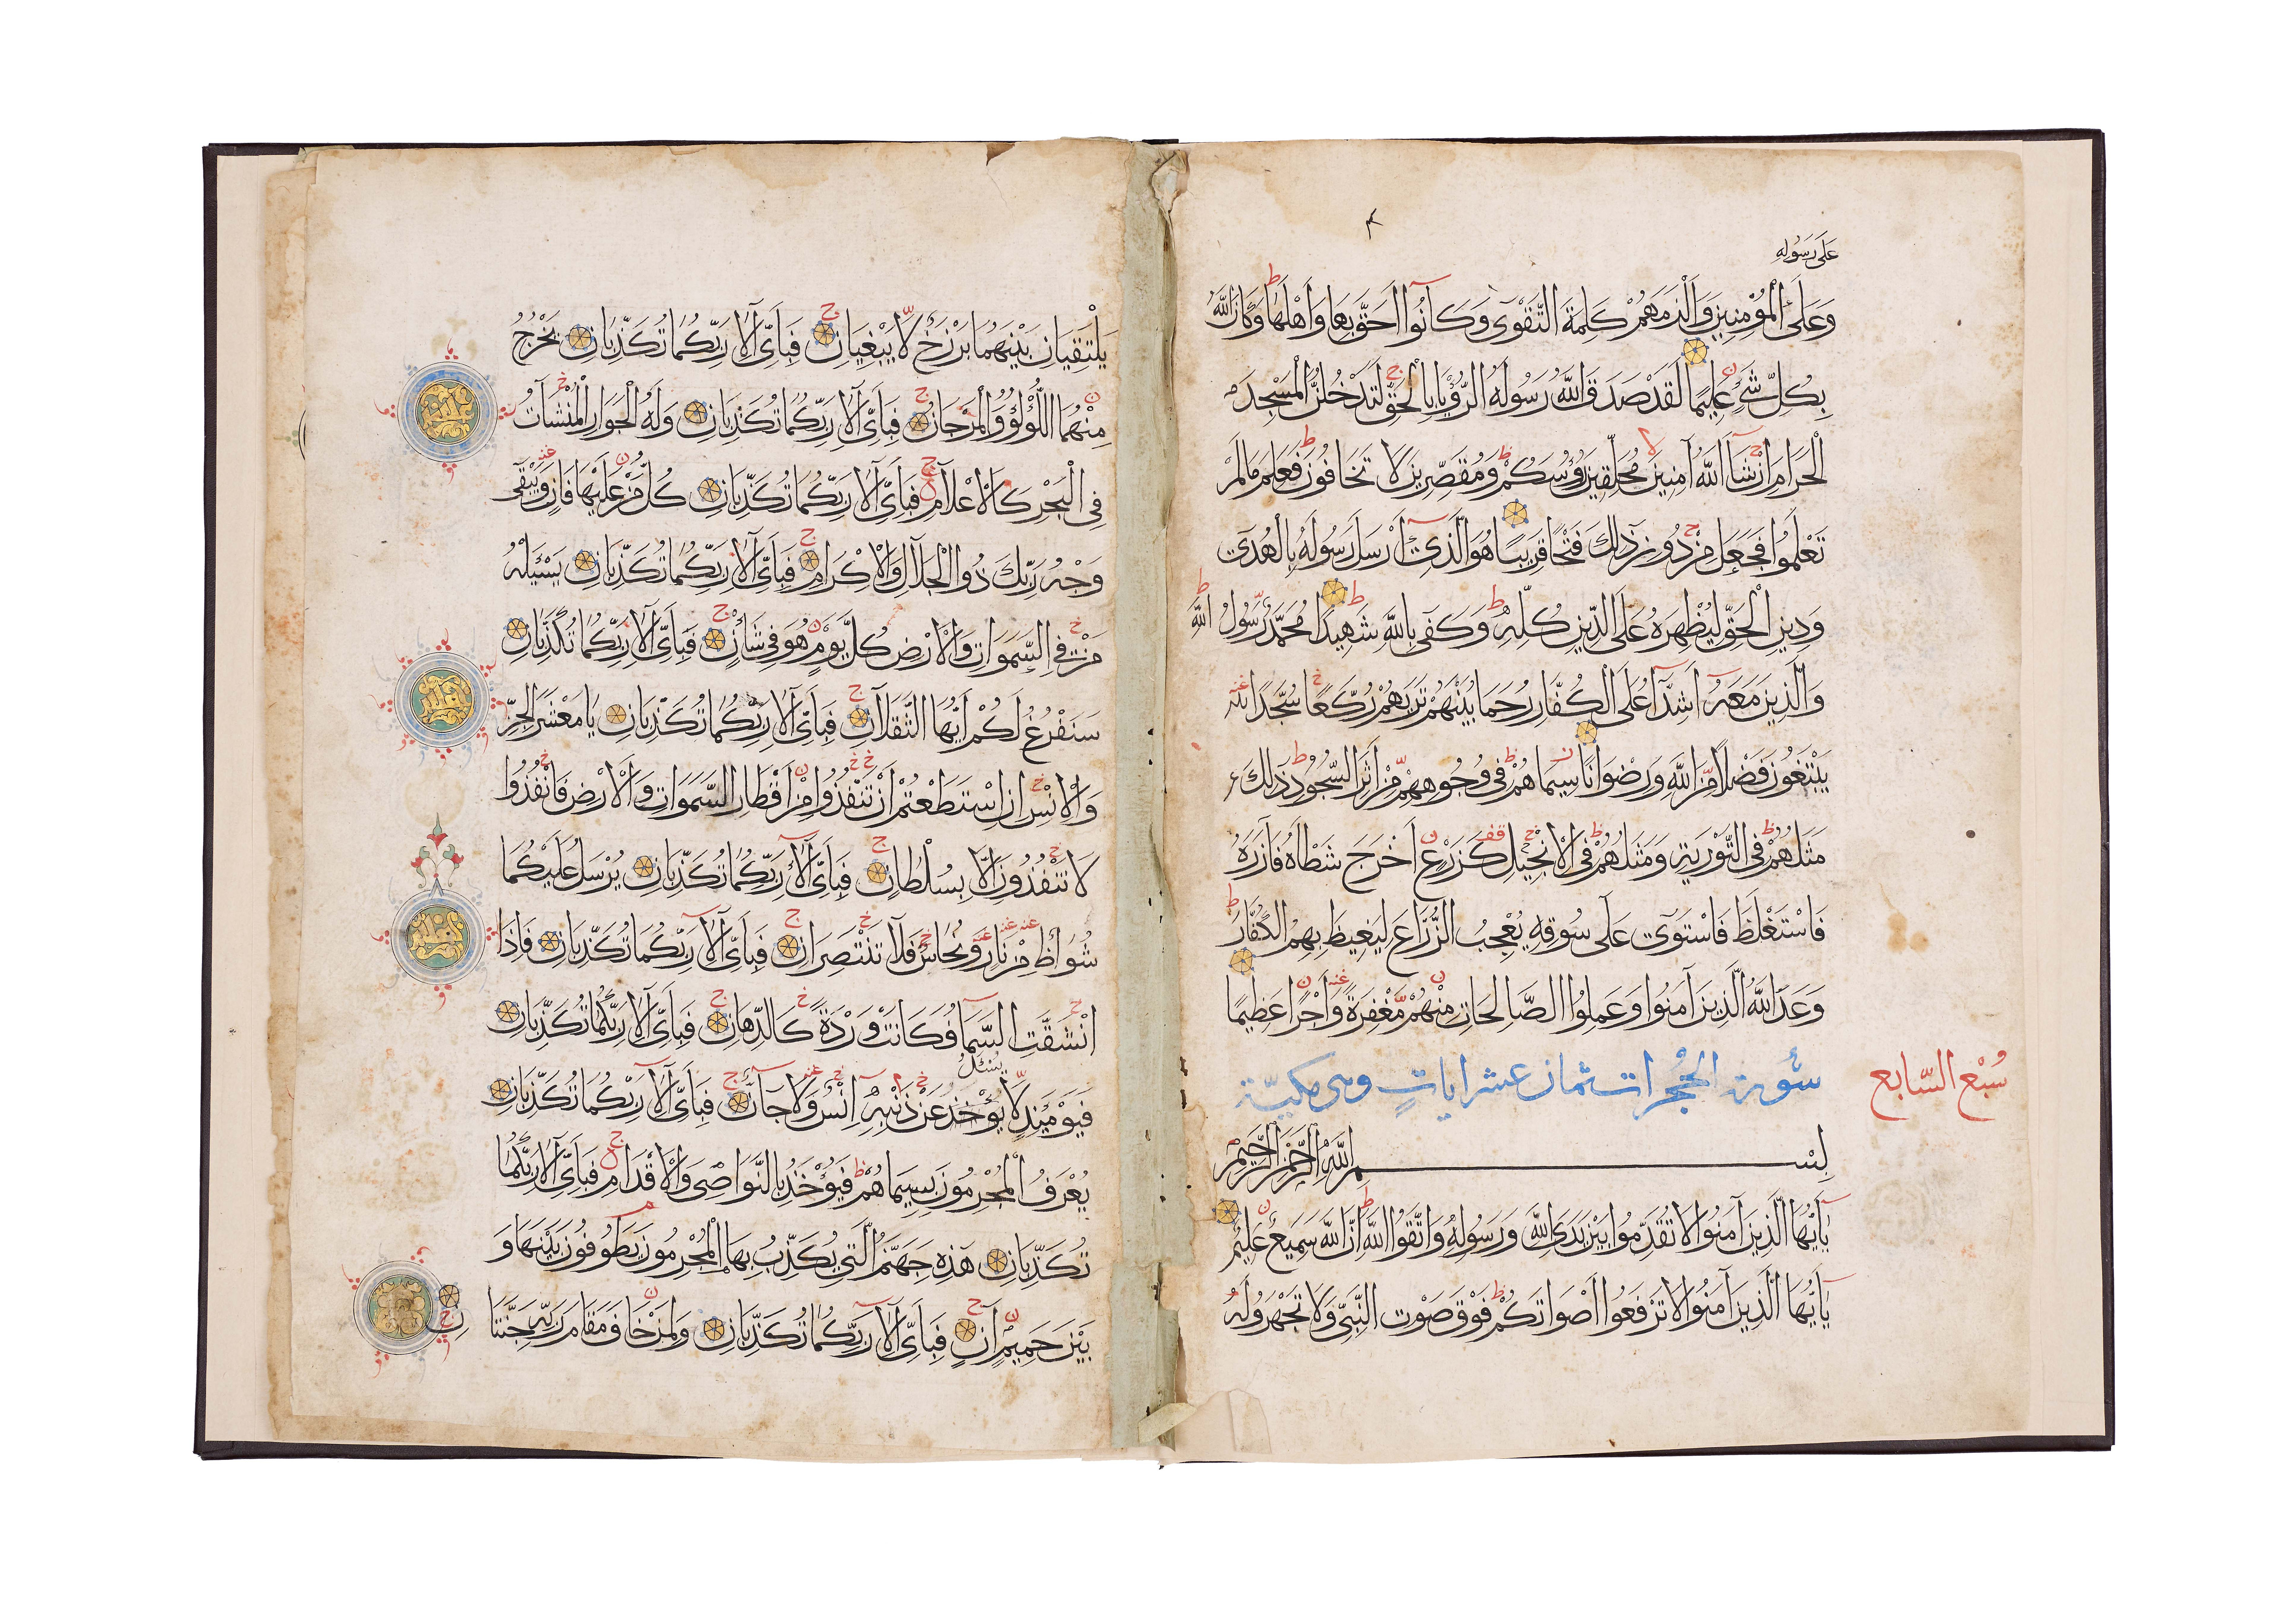 عَلَى رَسُولِهِ
وَعَلَى الْمُؤْمِنِينَ وَأَلْزَمَهُمْ كَلِمَةَ التَّقْوَى وَكَانُوا أَحَقَّ بِهَا وَأَهْلَهَا وَكَانَ اللَّهُ
بِكُلِّ شَيْءٍ عَلِيمًا لَقَدْ صَدَقَ اللَّهُ رَسُولَهُ الرُّؤْيَا بِالْحَقِّ لَتَدْخُلُنَّ الْمَسْجِدَ
الْحَرَامَ إِنْ شَاءَ اللَّهُ آمِنِينَ مُحَلِّقِينَ رُؤُسَكُمْ وَمُقَصِّرِينَ لَا تَخَافُونَ فَعَلِمَ مَا لَمْ
تَعْلَمُوا فَجَعَلَ مِنْ دُونِ ذَلِكَ فَتْحًا قَرِيبًا هُوَ الَّذِي أَرْسَلَ رَسُولَهُ بِالْهُدَى
وَدِينِ الْحَقِّ لِيُظْهِرَهُ عَلَى الدِّينِ كُلِّهِ وَكَفَى بِاللَّهِ شَهِيدًا مُحَمَّدٌ رَسُولُ اللَّهِ
وَالَّذِينَ مَعَهُ أَشِدَّاءُ عَلَى الْكُفَّارِ رُحَمَاءُ بَيْنَهُمْ تَرَاهُمْ رُكَّعًا سُجَّدًا
يَبْتَغُونَ فَضْلًا مِنَ اللَّهِ وَرِضْوَانًا سِيمَاهُمْ فِي وُجُوهِهِمْ مِنْ أَثَرِ السُّجُودِ ذَلِكَ
مَثَلُهُمْ فِي التَّوْرَيةِ وَمَثَلُهُمْ فِي الْإِنْجِيلِ كَزَرْعٍ أَخْرَجَ شَطْأَهُ فَآزَرَهُ
فَاسْتَغْلَظَ فَاسْتَوَى عَلَى سُوقِهِ يُعْجِبُ الزُّرَّاعَ لِيَغِيظَ بِهِمُ الْكُفَّارَ
وَعَدَ اللَّهُ الَّذِينَ آمَنُوا وَعَمِلُوا الصَّالِحَاتِ مِنْهُمْ مَغْفِرَةً وَأَجْرًا عَظِيمًا
سُورة الحُجُرات ثمان عشر ايات وهى مكيّة
سُبْع السّابع
بِسْمِ اللَّهِ الرَّحْمَنِ الرَّحِيمِ
يَا أَيُّهَا الَّذِينَ آمَنُوا لَا تُقَدِّمُوا بَيْنَ يَدَيِ اللَّهِ وَرَسُولِهِ وَاتَّقُوا اللَّهَ إِنَّ اللَّهَ سَمِيعٌ عَلِيمٌ
يَا أَيُّهَا الَّذِينَ آمَنُوا لَا تَرْفَعُوا أَصْوَاتَكُمْ فَوْقَ صَوْتِ النَّبِيِّ وَلَا تَجْهَرُوا لَهُ
يَلْتَقِيَانِ بَيْنَهُمَا بَرْزَخٌ لَا يَبْغِيَانِ فَبِأَيِّ آلَاءِ رَبِّكُمَا تُكَذِّبَانِ يَخْرُجُ
مِنْهُمَا اللُّؤْلُؤُ وَالْمَرْجَانُ فَبِأَيِّ آلَاءِ رَبِّكُمَا تُكَذِّبَانِ وَلَهُ الْجَوَارِ الْمُنْشَآتُ
فِي الْبَحْرِ كَالْأَعْلَامِ فَبِأَيِّ آلَاءِ رَبِّكُمَا تُكَذِّبَانِ كُلُّ مَنْ عَلَيْهَا فَانٍ وَيَبْقَى
وَجْهُ رَبِّكَ ذُو الْجَلَالِ وَالْإِكْرَامِ فَبِأَيِّ آلَاءِ رَبِّكُمَا تُكَذِّبَانِ يَسْئَلُهُ
مَنْ فِي السَّمَوَاتِ وَالْأَرْضِ كُلَّ يَوْمٍ هُوَ فِي شَأْنٍ فَبِأَيِّ آلَاءِ رَبِّكُمَا تُكَذِّبَانِ
سَنَفْرُغُ لَكُمْ أَيُّهَا الثَّقَلَانِ فَبِأَيِّ آلَاءِ رَبِّكُمَا تُكَذِّبَانِ يَا مَعْشَرَ الْجِنِّ
وَالْإِنْسِ إِنِ اسْتَطَعْتُمْ أَنْ تَنْفُذُوا مِنْ أَقْطَارِ السَّمَوَاتِ وَالْأَرْضِ فَانْفُذُوا
لَا تَنْفُذُونَ إِلَّا بِسُلْطَانٍ فَبِأَيِّ آلَاءِ رَبِّكُمَا تُكَذِّبَانِ يُرْسَلُ عَلَيْكُمَا
شُوَاظٌ مِنْ نَارٍ وَنُحَاسٌ فَلَا تَنْتَصِرَانِ فَبِأَيِّ آلَاءِ رَبِّكُمَا تُكَذِّبَانِ فَإِذَا
انْشَقَّتِ السَّمَاءُ فَكَانَتْ وَرْدَةً كَالدِّهَانِ فَبِأَيِّ آلَاءِ رَبِّكُمَا تُكَذِّبَانِ
يُسْئَلُ
فَيَوْمَئِذٍ لَا يُؤْخَذُ عَنْ ذَنْبِهِ إِنْسٌ وَلَا جَانٌّ فَبِأَيِّ آلَاءِ رَبِّكُمَا تُكَذِّبَانِ
يُعْرَفُ الْمُجْرِمُونَ بِسِيمَاهُمْ فَيُؤْخَذُ بِالنَّوَاصِي وَالْأَقْدَامِ فَبِأَيِّ آلَاءِ رَبِّكُمَا
تُكَذِّبَانِ هَذِهِ جَهَنَّمُ الَّتِي يُكَذِّبُ بِهَا الْمُجْرِمُونَ يَطُوفُونَ بَيْنَهَا وَ
بَيْنَ حَمِيمٍ آنٍ فَبِأَيِّ آلَاءِ رَبِّكُمَا تُكَذِّبَانِ وَلِمَنْ خَافَ مَقَامَ رَبِّهِ جَنَّتَانِ